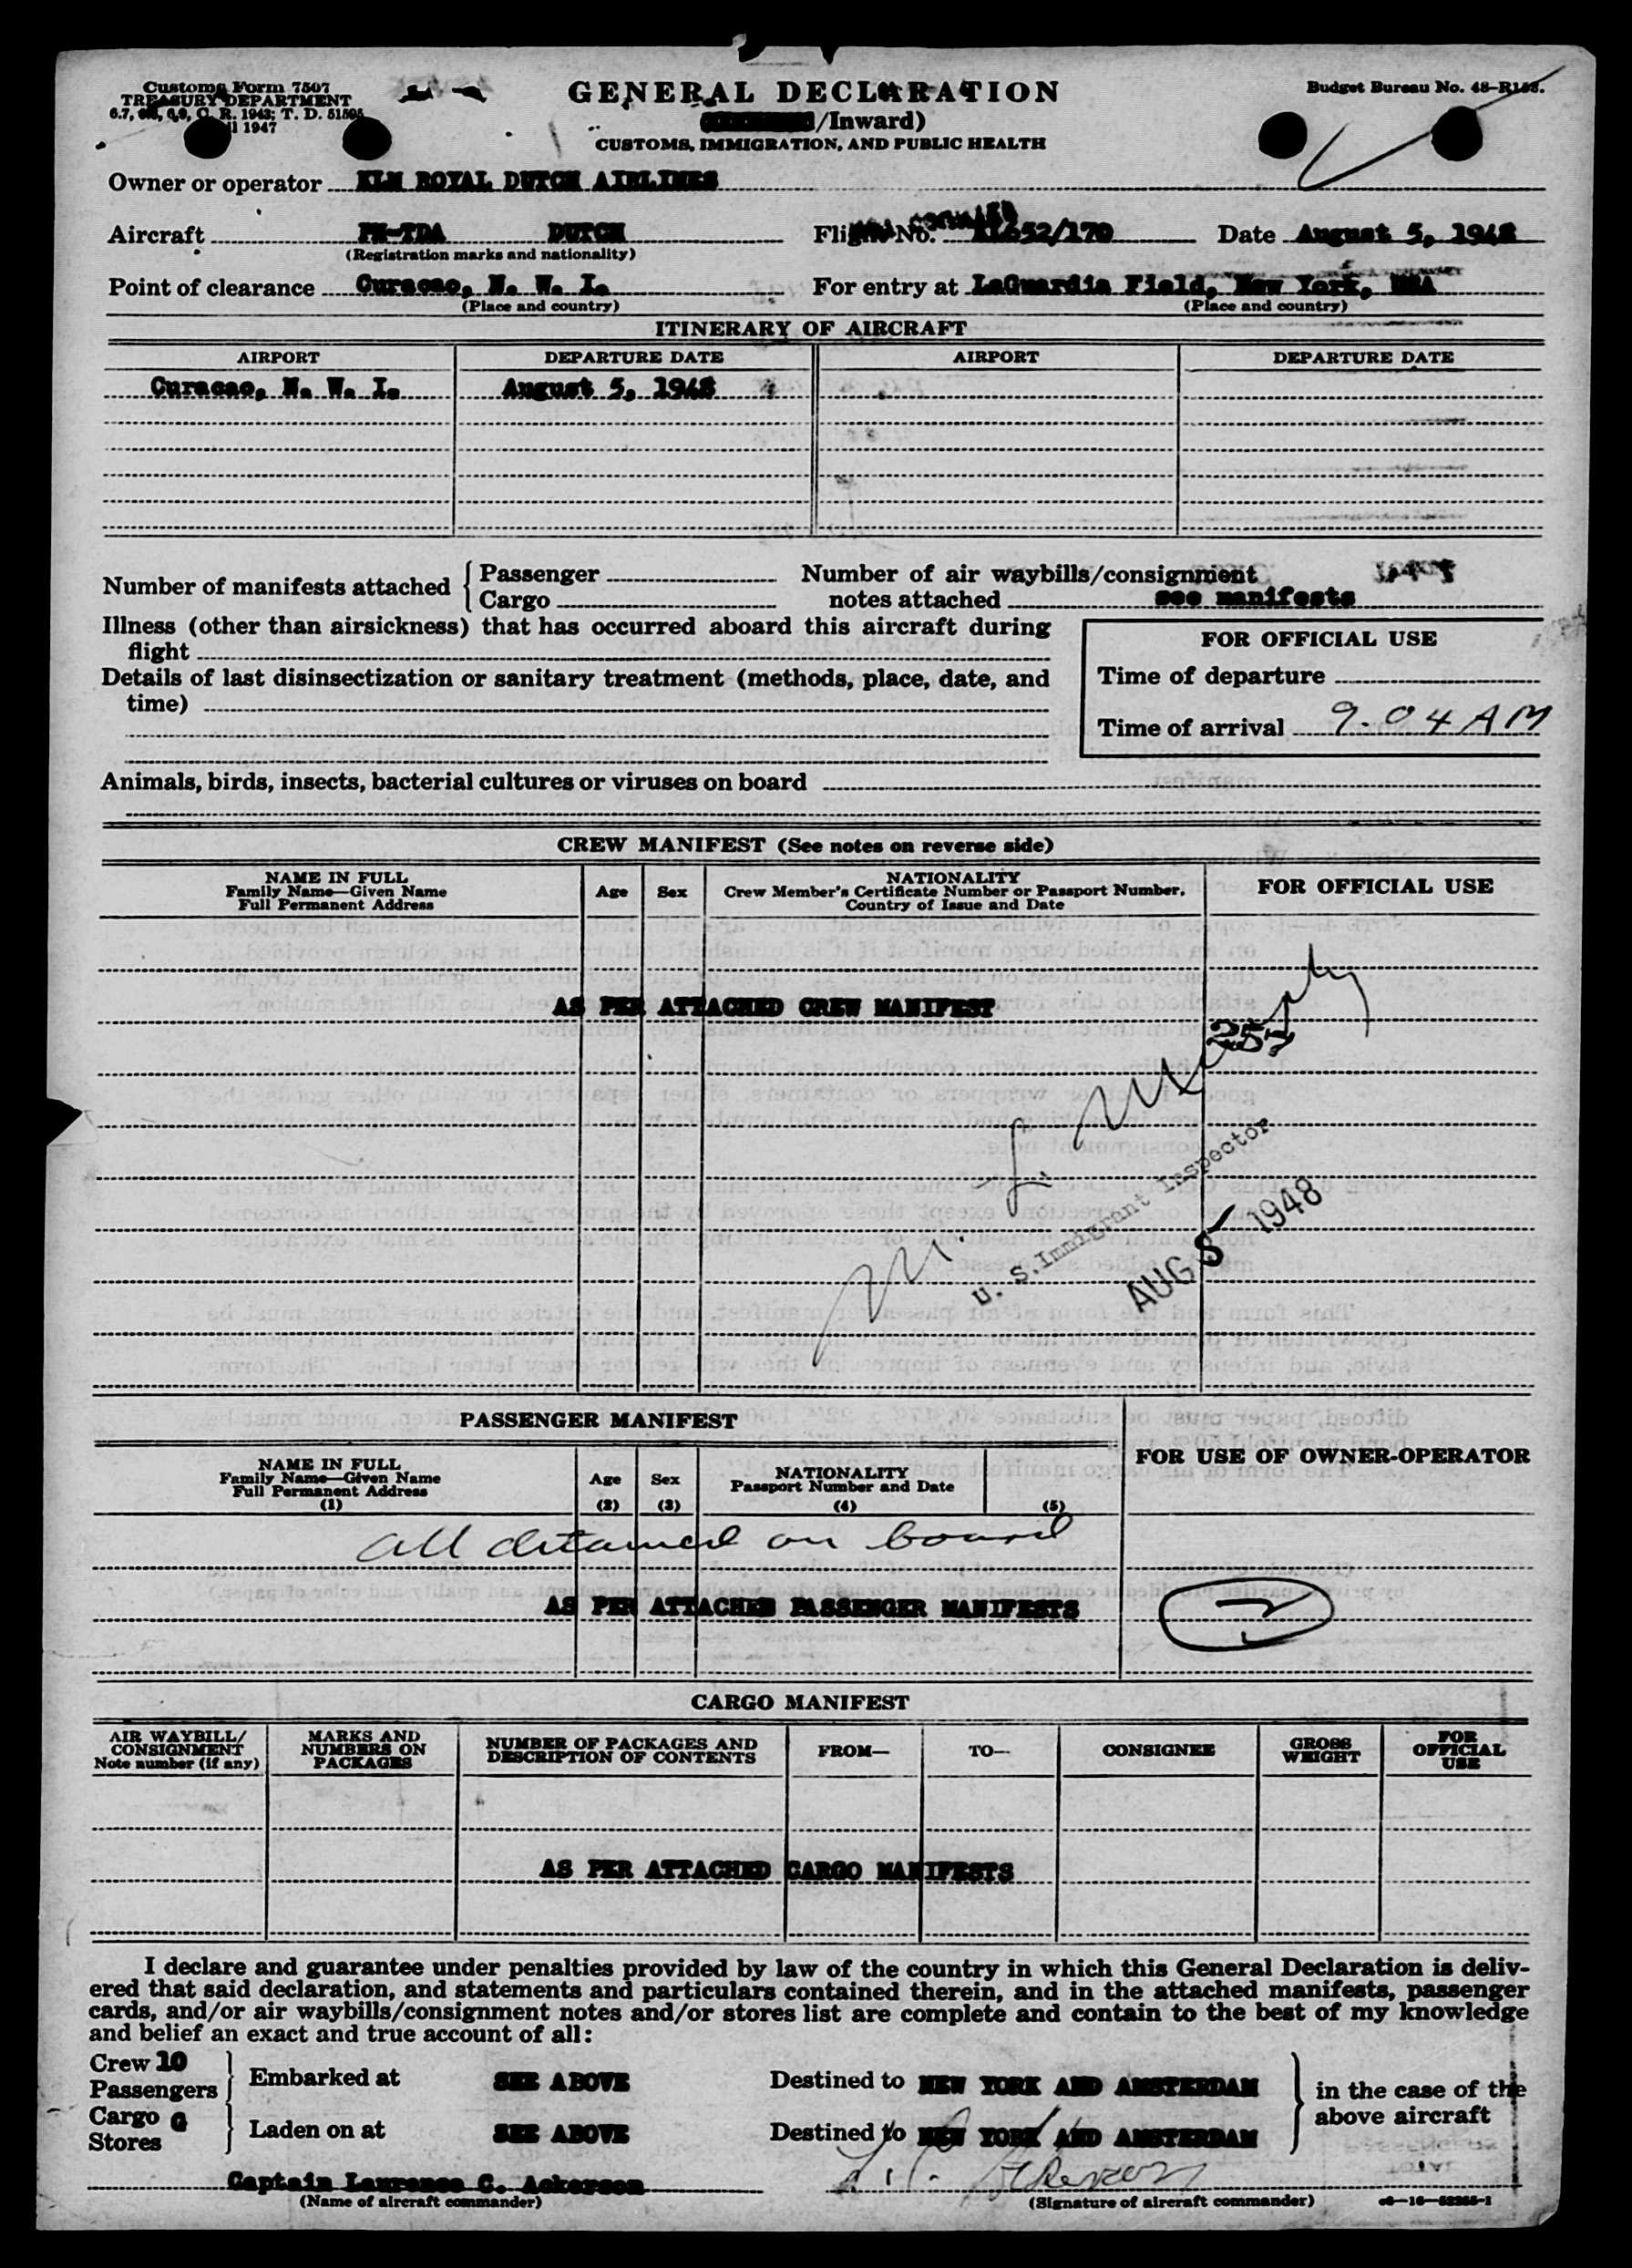 Customs Form 7507
TREASURY DEPARTMENT
GENERAL DECLARATION
/Inward)
CUSTOMS, IMMIGRATION, AND PUBLIC HEALTH
Budget Bureau No. 48-R158.
Owner or operator KLM ROYAL DUTCH AIRLINES
Aircraft PH-TDA DUTCH Flight No. 652/170 Date August 5, 1948
(Registration marks and nationality)
Point of clearance Curacao, N. W. I. For entry at LaGuardia Field, New York, USA
(Place and country) (Place and country)
ITINERARY OF AIRCRAFT
AIRPORT DEPARTURE DATE AIRPORT DEPARTURE DATE
Curacao, N. W. I. August 5, 1948
Number of manifests attached { Passenger
Cargo
Number of air waybills/consignment
notes attached see manifests
Illness (other than airsickness) that has occurred aboard this aircraft during
flight
Details of last disinsectization or sanitary treatment (methods, place, date, and
time)
FOR OFFICIAL USE
Time of departure
Time of arrival 9.04 AM
Animals, birds, insects, bacterial cultures or viruses on board
CREW MANIFEST (See notes on reverse side)
NAME IN FULL
Family Name—Given Name
Full Permanent Address
Age
Sex
NATIONALITY
Crew Member's Certificate Number or Passport Number,
Country of Issue and Date
FOR OFFICIAL USE
AS PER ATTACHED CREW MANIFEST
257
U. S. Immigrant Inspector
AUG 5 1948
PASSENGER MANIFEST
FOR USE OF OWNER-OPERATOR
NAME IN FULL
Family Name—Given Name
Full Permanent Address
(1)
Age
(2)
Sex
(3)
NATIONALITY
Passport Number and Date
(4)
(5)
all detained on board
AS PER ATTACHED PASSENGER MANIFESTS
CARGO MANIFEST
AIR WAYBILL/
CONSIGNMENT
Note number (if any)
MARKS AND
NUMBERS ON
PACKAGES
NUMBER OF PACKAGES AND
DESCRIPTION OF CONTENTS
FROM—
TO—
CONSIGNEE
GROSS
WEIGHT
FOR
OFFICIAL
USE
AS PER ATTACHED CARGO MANIFESTS
I declare and guarantee under penalties provided by law of the country in which this General Declaration is deliv-
ered that said declaration, and statements and particulars contained therein, and in the attached manifests, passenger
cards, and/or air waybills/consignment notes and/or stores list are complete and contain to the best of my knowledge
and belief an exact and true account of all:
Crew 10
Passengers
Embarked at SEE ABOVE Destined to NEW YORK AND AMSTERDAM
Cargo
Stores
Laden on at SEE ABOVE Destined to NEW YORK AND AMSTERDAM
in the case of the
above aircraft
Captain Laurence C. Ackerson
(Name of aircraft commander) (Signature of aircraft commander)